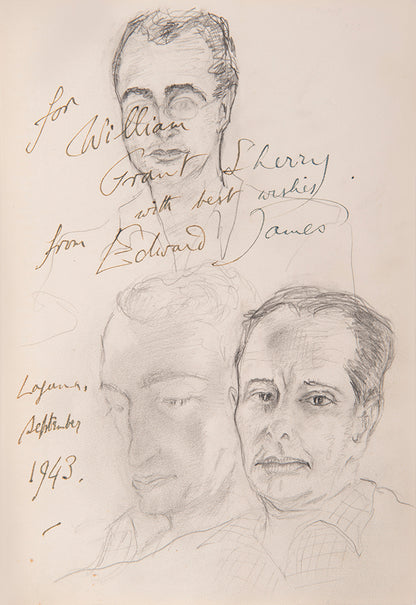 for William
Grant Sherry.
with best wishes
from Edward James
Laguna,
September
1943.